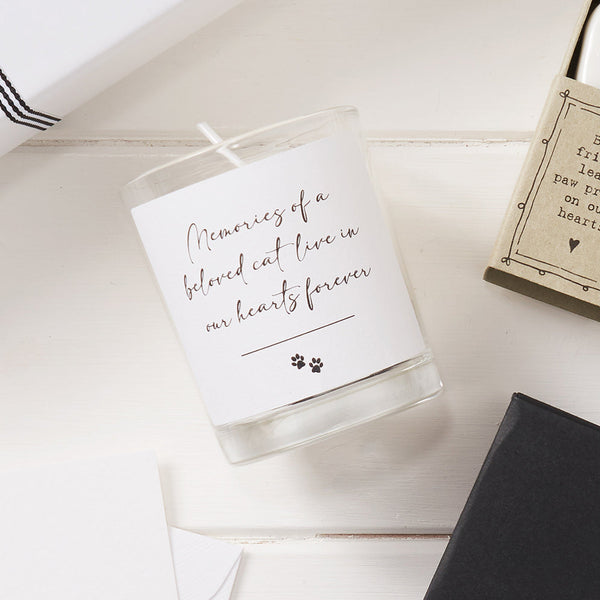 Memories of a
beloved cat live in
our hearts forever
fri
lea
paw pr
on ou
heart